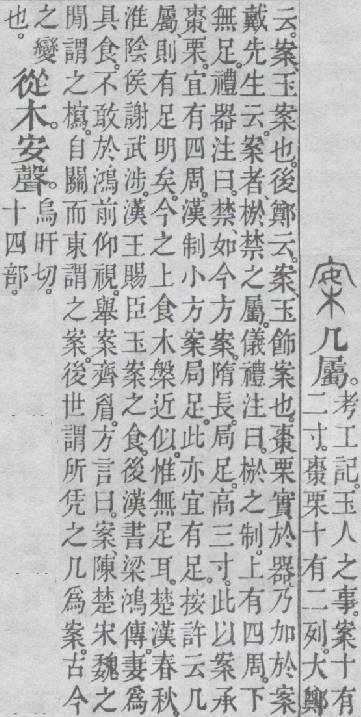 案几屬。考工記。玉人之事。案十有
二寸。棗栗十有二列。大鄭
云。案、玉案也。後鄭云。案、玉飾案也。棗栗實於器。乃加於案。
戴先生云。案者、棜禁之屬。儀禮注曰。棜之制。上有四周。下
無足。禮器注曰。禁、如今方案。隋長。局足。高三寸。此以案承
棗栗。宜有四周。漢制小方案局足。此亦宜有足。按許云几
屬。則有足明矣。今之上食木槃近似。惟無足耳。楚漢春秋。
淮陰侯謝武涉。漢王賜臣玉案之食。後漢書梁鴻傳。妻爲
具食。不敢於鴻前仰視。舉案齊睂。方言曰。案、陳楚宋魏之
閒謂之㯕。自關而東謂之案。後世謂所凭之几爲案。古今
之變
也。
從木安聲。
烏旰切。
十四部。